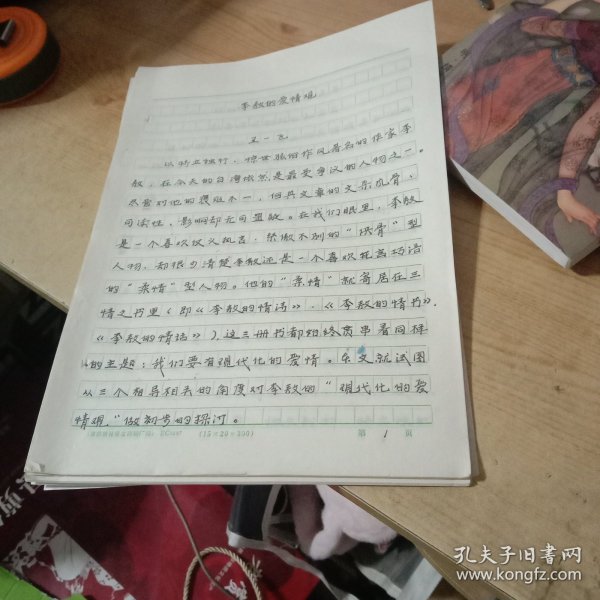 李敖的爱情观
王一飞
以特立独行、惊世骇俗作风著名的作家李
敖，在今天的台湾依然是最受争议的人物之一。
尽管对他的褒贬不一，但其文章的文采风骨、
可读性、影响却无可置疑。在我们眼里，李敖
是一个喜欢仗义执言、桀骜不驯的“硬骨”型
人物，却很少清楚李敖还是一个喜欢
的“柔情”型人物。他的“柔情”就寄居在三
情之书里（即《李敖的情诗》、《李敖的情书》、
《李敖的情话》），这三册书都始终贯串着同样
的主题：我们要有现代化的爱情。本文就试图
从三个相异相关的角度对李敖的“现代化的爱
情观，”做初步的探讨。
(15×20=300)
第 1 页
孔夫子旧书网
www.kongfz.com